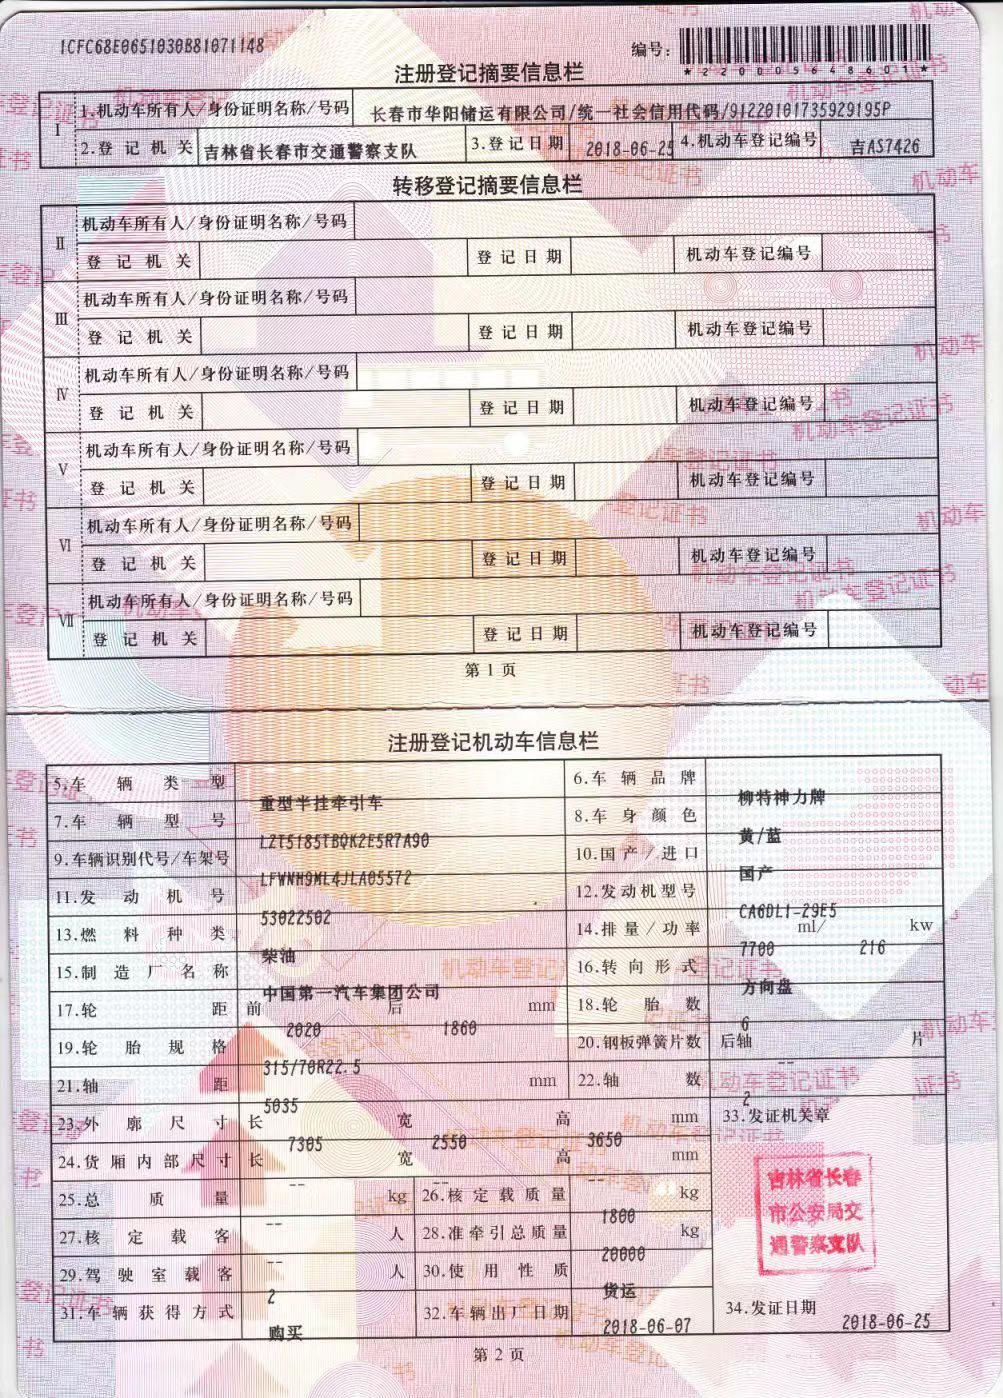 1CFC68E0651030B81071148
编号:
*220005648601*
注册登记摘要信息栏
I
1.机动车所有人/身份证明名称/号码 长春市华阳储运有限公司/统一社会信用代码/91220101735929195P
2.登记机关 吉林省长春市交通警察支队 3.登记日期 2018-06-25 4.机动车登记编号 吉AS7426
转移登记摘要信息栏
II
机动车所有人/身份证明名称/号码
登记机关 登记日期 机动车登记编号
III
机动车所有人/身份证明名称/号码
登记机关 登记日期 机动车登记编号
IV
机动车所有人/身份证明名称/号码
登记机关 登记日期 机动车登记编号
V
机动车所有人/身份证明名称/号码
登记机关 登记日期 机动车登记编号
VI
机动车所有人/身份证明名称/号码
登记机关 登记日期 机动车登记编号
VII
机动车所有人/身份证明名称/号码
登记机关 登记日期 机动车登记编号
第 1 页
注册登记机动车信息栏
5.车辆类型 重型半挂牵引车 6.车辆品牌 柳特神力牌
7.车辆型号 LZT5185TBQK2E5R7A90 8.车身颜色 黄/蓝
9.车辆识别代号/车架号 LFWNH9ML4JLA05572 10.国产/进口 国产
11.发动机号 53022502 12.发动机型号 CA6DL1-29E5
13.燃料种类 柴油 14.排量/功率 7700 ml/ 216 kw
15.制造厂名称 中国第一汽车集团公司 16.转向形式 方向盘
17.轮距 前 2020 后 1860 mm 18.轮胎数 6
19.轮胎规格 315/70R22.5 20.钢板弹簧片数 后轴 -- 片
21.轴距 5035 mm 22.轴数 2
23.外廓尺寸 长 7305 宽 2550 高 3650 mm 33.发证机关章
24.货厢内部尺寸 长 -- 宽 -- 高 -- mm
25.总质量 -- kg 26.核定载质量 1800 kg
27.核定载客 -- 人 28.准牵引总质量 20000 kg
29.驾驶室载客 2 人 30.使用性质 货运
31.车辆获得方式 购买 32.车辆出厂日期 2018-06-07 34.发证日期 2018-06-25
吉林省长春
市公安局交
通警察支队
第 2 页